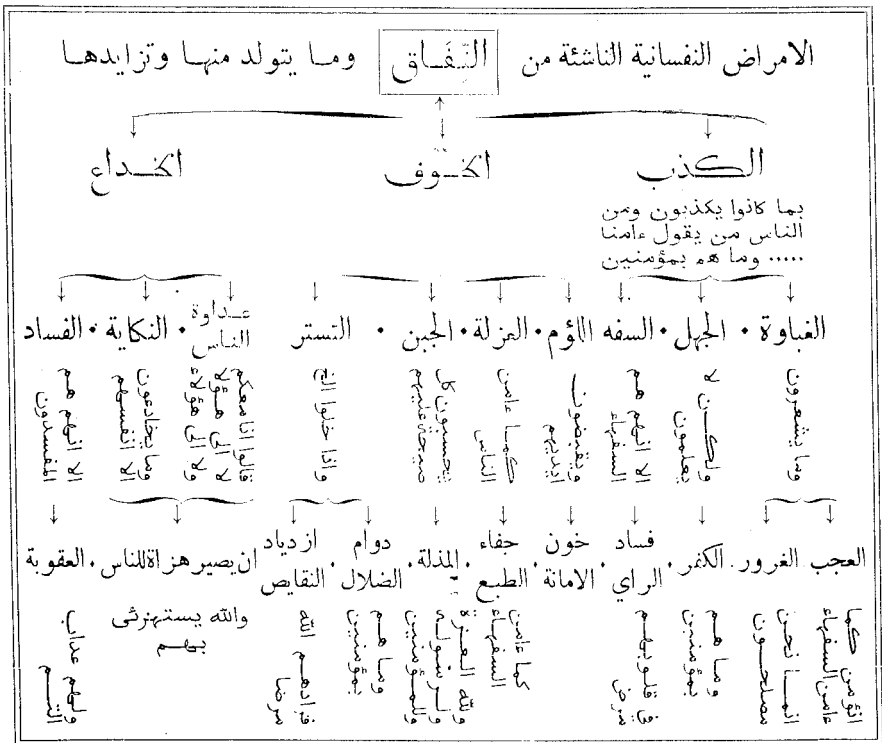 الامراض النفسانية الناشئة من النِّفَاق وما يتولد منها وتزايدها
الكذب
الخوف
الخداع
بما كانوا يكذبون ومن
الناس من يقول ءامنا
..... وما هم بمؤمنين
الغباوة • الجهل • السفه
اللؤم • العزلة • الجبن • التستر
عداوة
الناس • النكاية • الفساد
وما يشعرون
ولكن لا
يعلمون
الا انهم هم
السفهاء
ويقبضون
ايديهم
كما ءامن
الناس
يحسبون كل
صيحة عليهم
واذا خلوا الخ
قالوا انا معكم
لا الى هؤلا
ولا الى هؤلاء
وما يخادعون
الا انفسهم
الا انهم هم
المفسدون
العجب • الغرور • الكفر •
فساد
الراي •
خون
الامانة •
جفاء
الطبع •
المذلة •
دوام
الضلال •
ازدياد
النقايص
ان يصير هزاة للناس • العقوبة
انؤمن كما
ءامن السفهاء
انما نحن
مصلحون
وما هم
بمؤمنين
في قلوبهم
مرض
كما ءامن
السفهاء
ولله العزة
ولرسوله
وللمؤمنين
وما هم
بمؤمنين
فزادهم الله
مرضا
والله يستهزئى
بهم
ولهم عداب
اليم